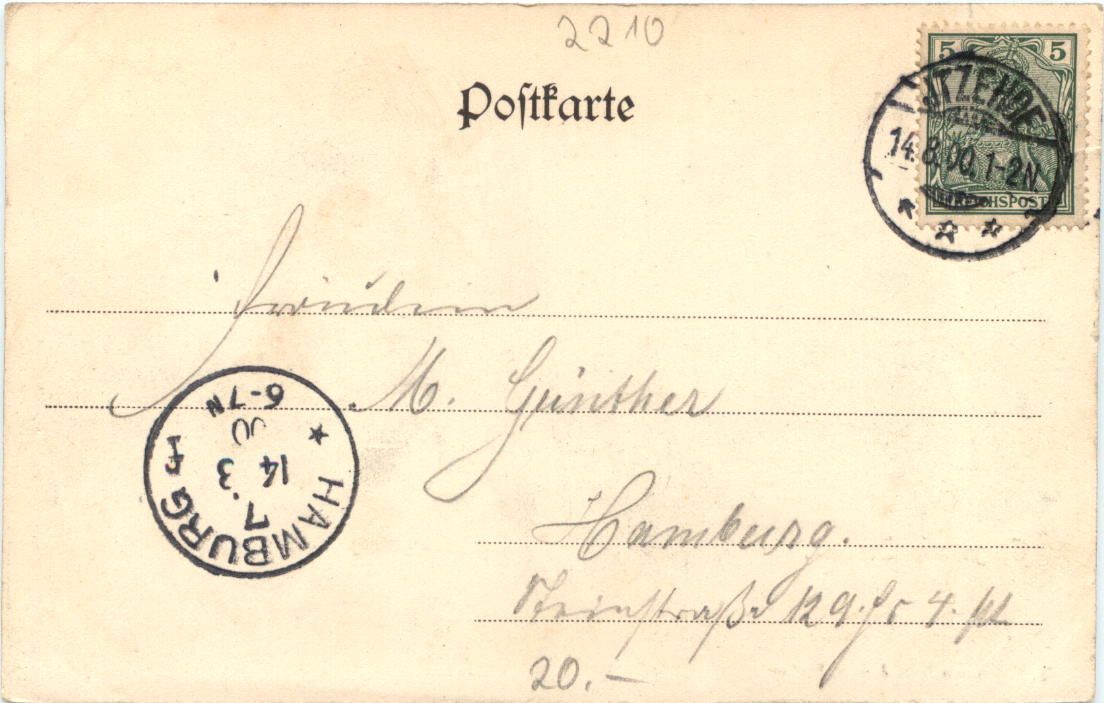 2210
Postkarte
5 5
ITZEHOE
14.8.00.1-2N.
REICHSPOST
Fräulein
M. Günther
Hamburg.
Steinstraße 129. 4.
20.-
HAMBURG 1
7.
14 3
00
6-7N